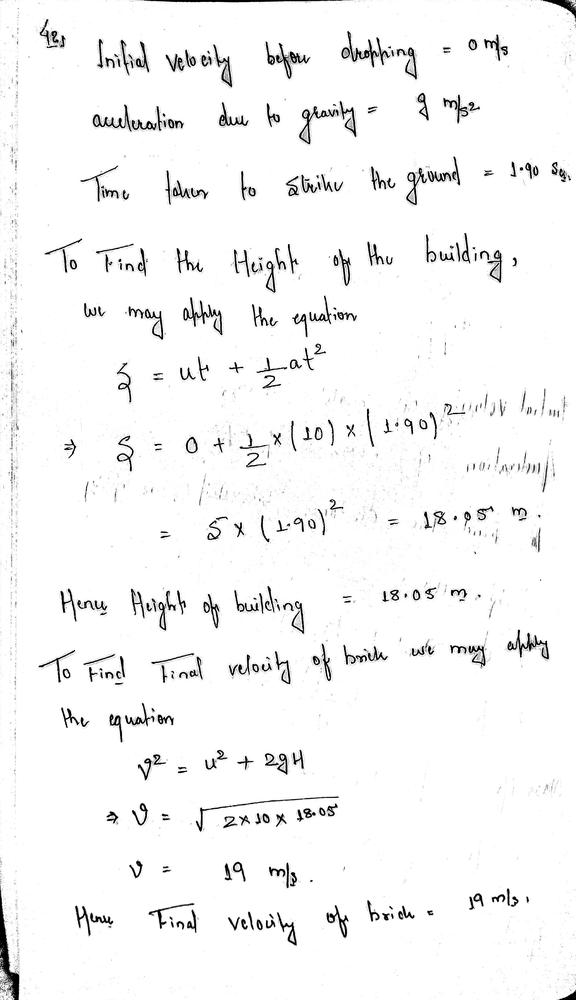 42,
Initial velocity before dropping = 0 m/s
acceleration due to gravity = g m/s2
Time taken to strike the ground = 1.90 Sec.
To Find the Height of the building,
we may apply the equation
S = ut + 1/2 at²
⇒ S = 0 + 1/2 × (10) × (1.90)²
= 5 × (1.90)² = 18.05 m.
Hence Height of building = 18.05 m.
To Find Final velocity of brick we may apply
the equation
v² = u² + 2gH
⇒ v = √2×10×18.05
v = 19 m/s.
Hence Final velocity of brick = 19 m/s.